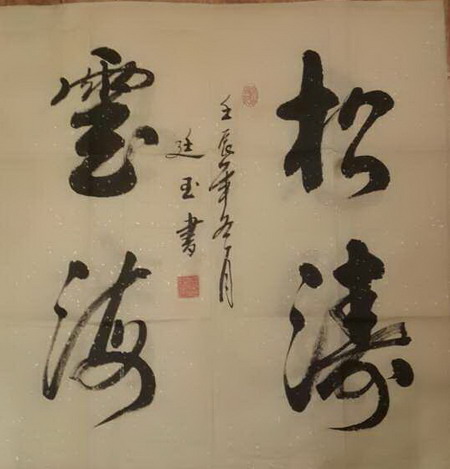 松濤
雲海
壬辰年冬月
廷玉書